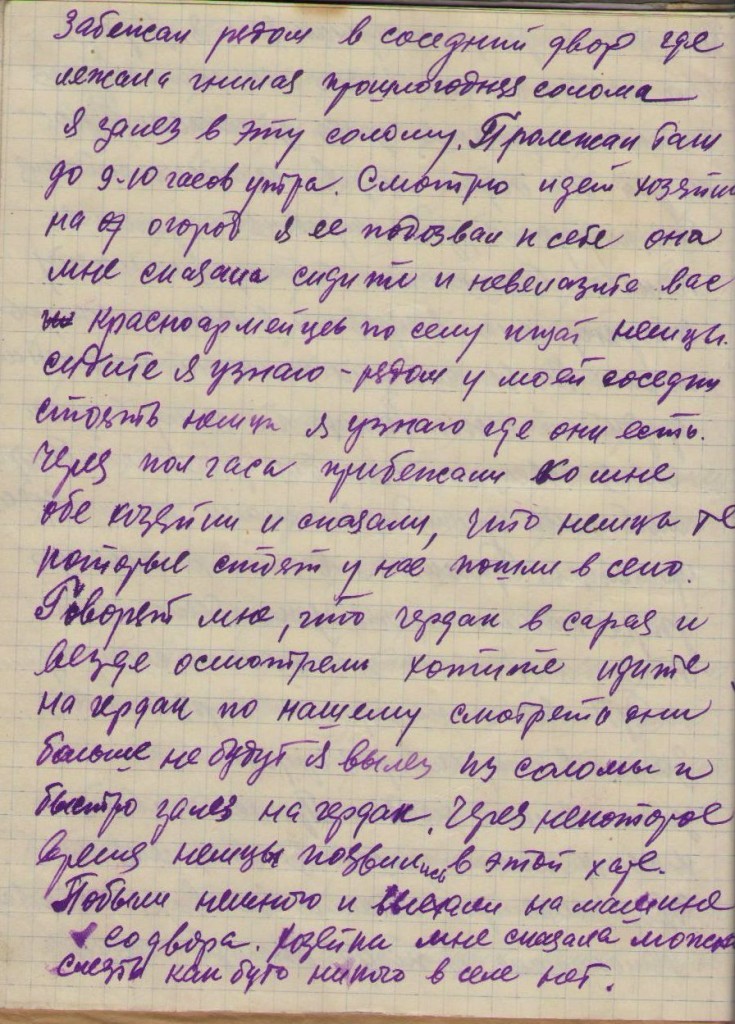 Забежал рядом в соседний двор где
лежала гнилая прошлогодняя солома
я залез в эту солому. Пролежал там
до 9-10 часов утра. Смотрю идет хозяйк
на огород я ее подозвал к себе она
мне сказала сидите и невелазите вас
красноармейцев по селу ищат немцы.
сидите я узнаю - рядом у моей соседки
стоять немцы я узнаю где они есть.
Через пол часа прибежали ко мне
обе хозяйки и сказали, что немцы те
которые стоят у нас пошли в село.
Говорят мне, что чердак в сарая и
везде осмотрели хотите идите
на чердак по нашему смотреть они
больше не будут я вылез из соломы и
быстро залез на чердак. Через некоторое
время немцы позвились в этой хате.
Побыли немного и выехали на машине
со двора. хозяйка мне сказала можно
слезть как буто никого в селе нет.